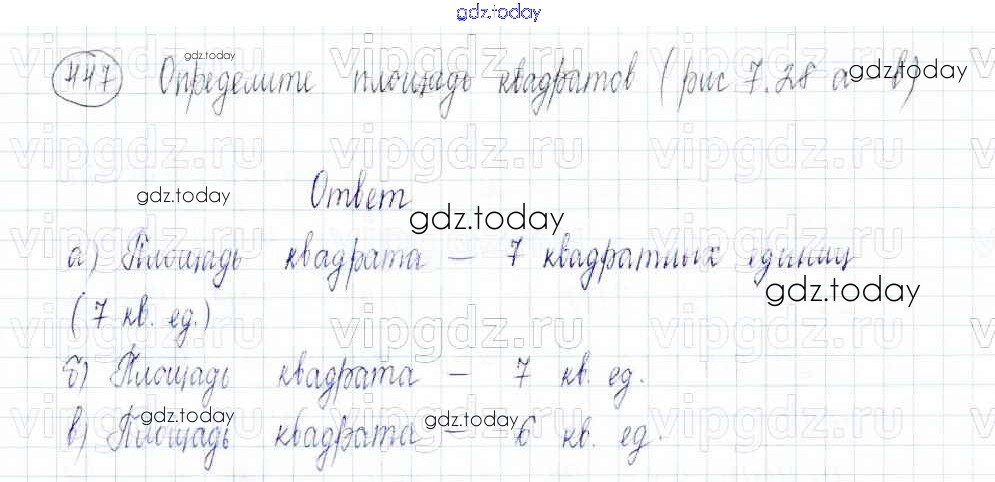 gdz.today
447 Определите площадь квадратов (рис 7.28 а - в)
gdz.today
gdz.today
vipgdz.ru vipgdz.ru vipgdz.ru
Ответ
gdz.today
gdz.today
а) Площадь квадрата – 7 квадратных единиц
vipgdz.ru vipgdz.ru vipgdz.ru
gdz.today
(7 кв. ед.)
vipgdz.ru vipgdz.ru vipgdz.ru
б) Площадь квадрата – 7 кв. ед.
gdz.today
gdz.today
в) Площадь квадрата – 6 кв. ед.
vipgdz.ru vipgdz.ru vipgdz.ru